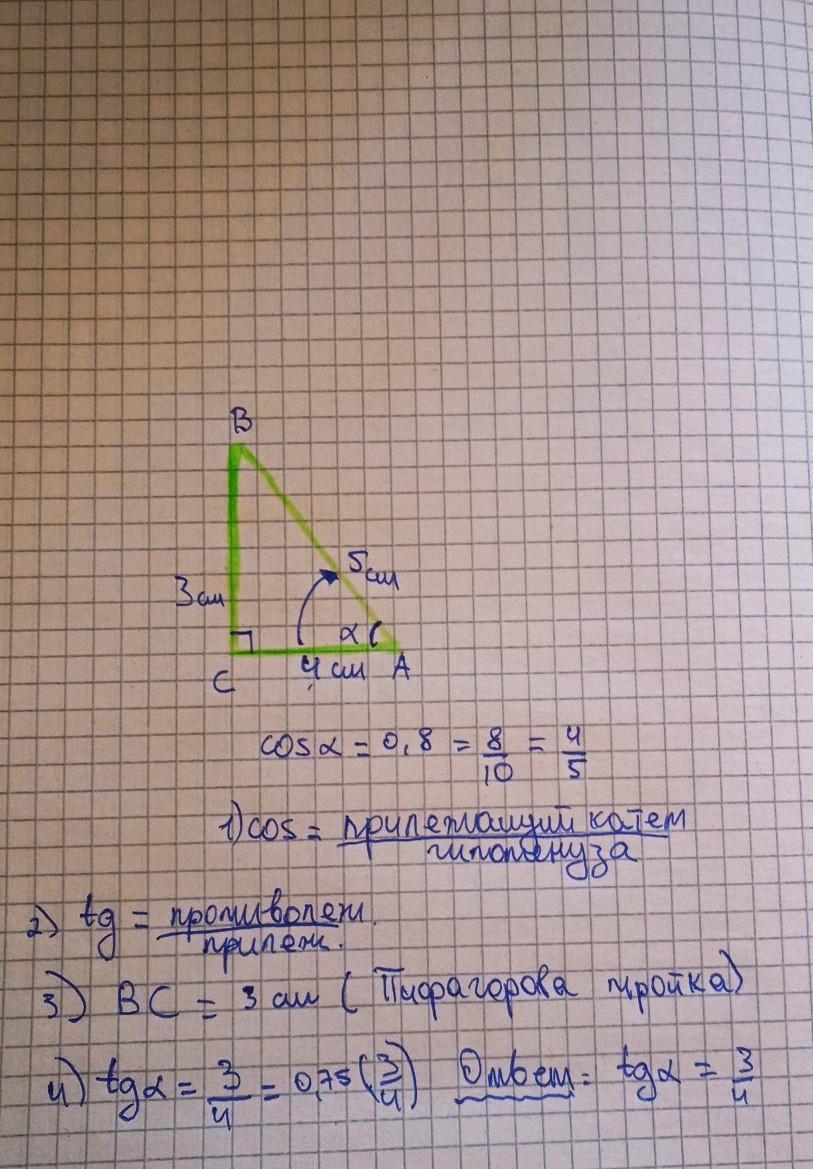 B
5см
3см
α
C 4 см A
cosα = 0,8 = 8/10 = 4/5
1) cos = прилежащий катет / гипотенуза
2) tg = противолеж. / прилеж.
3) BC = 3 см ( Пифагорова тройка)
4) tgα = 3/4 = 0,75 (3/4) Ответ: tgα = 3/4